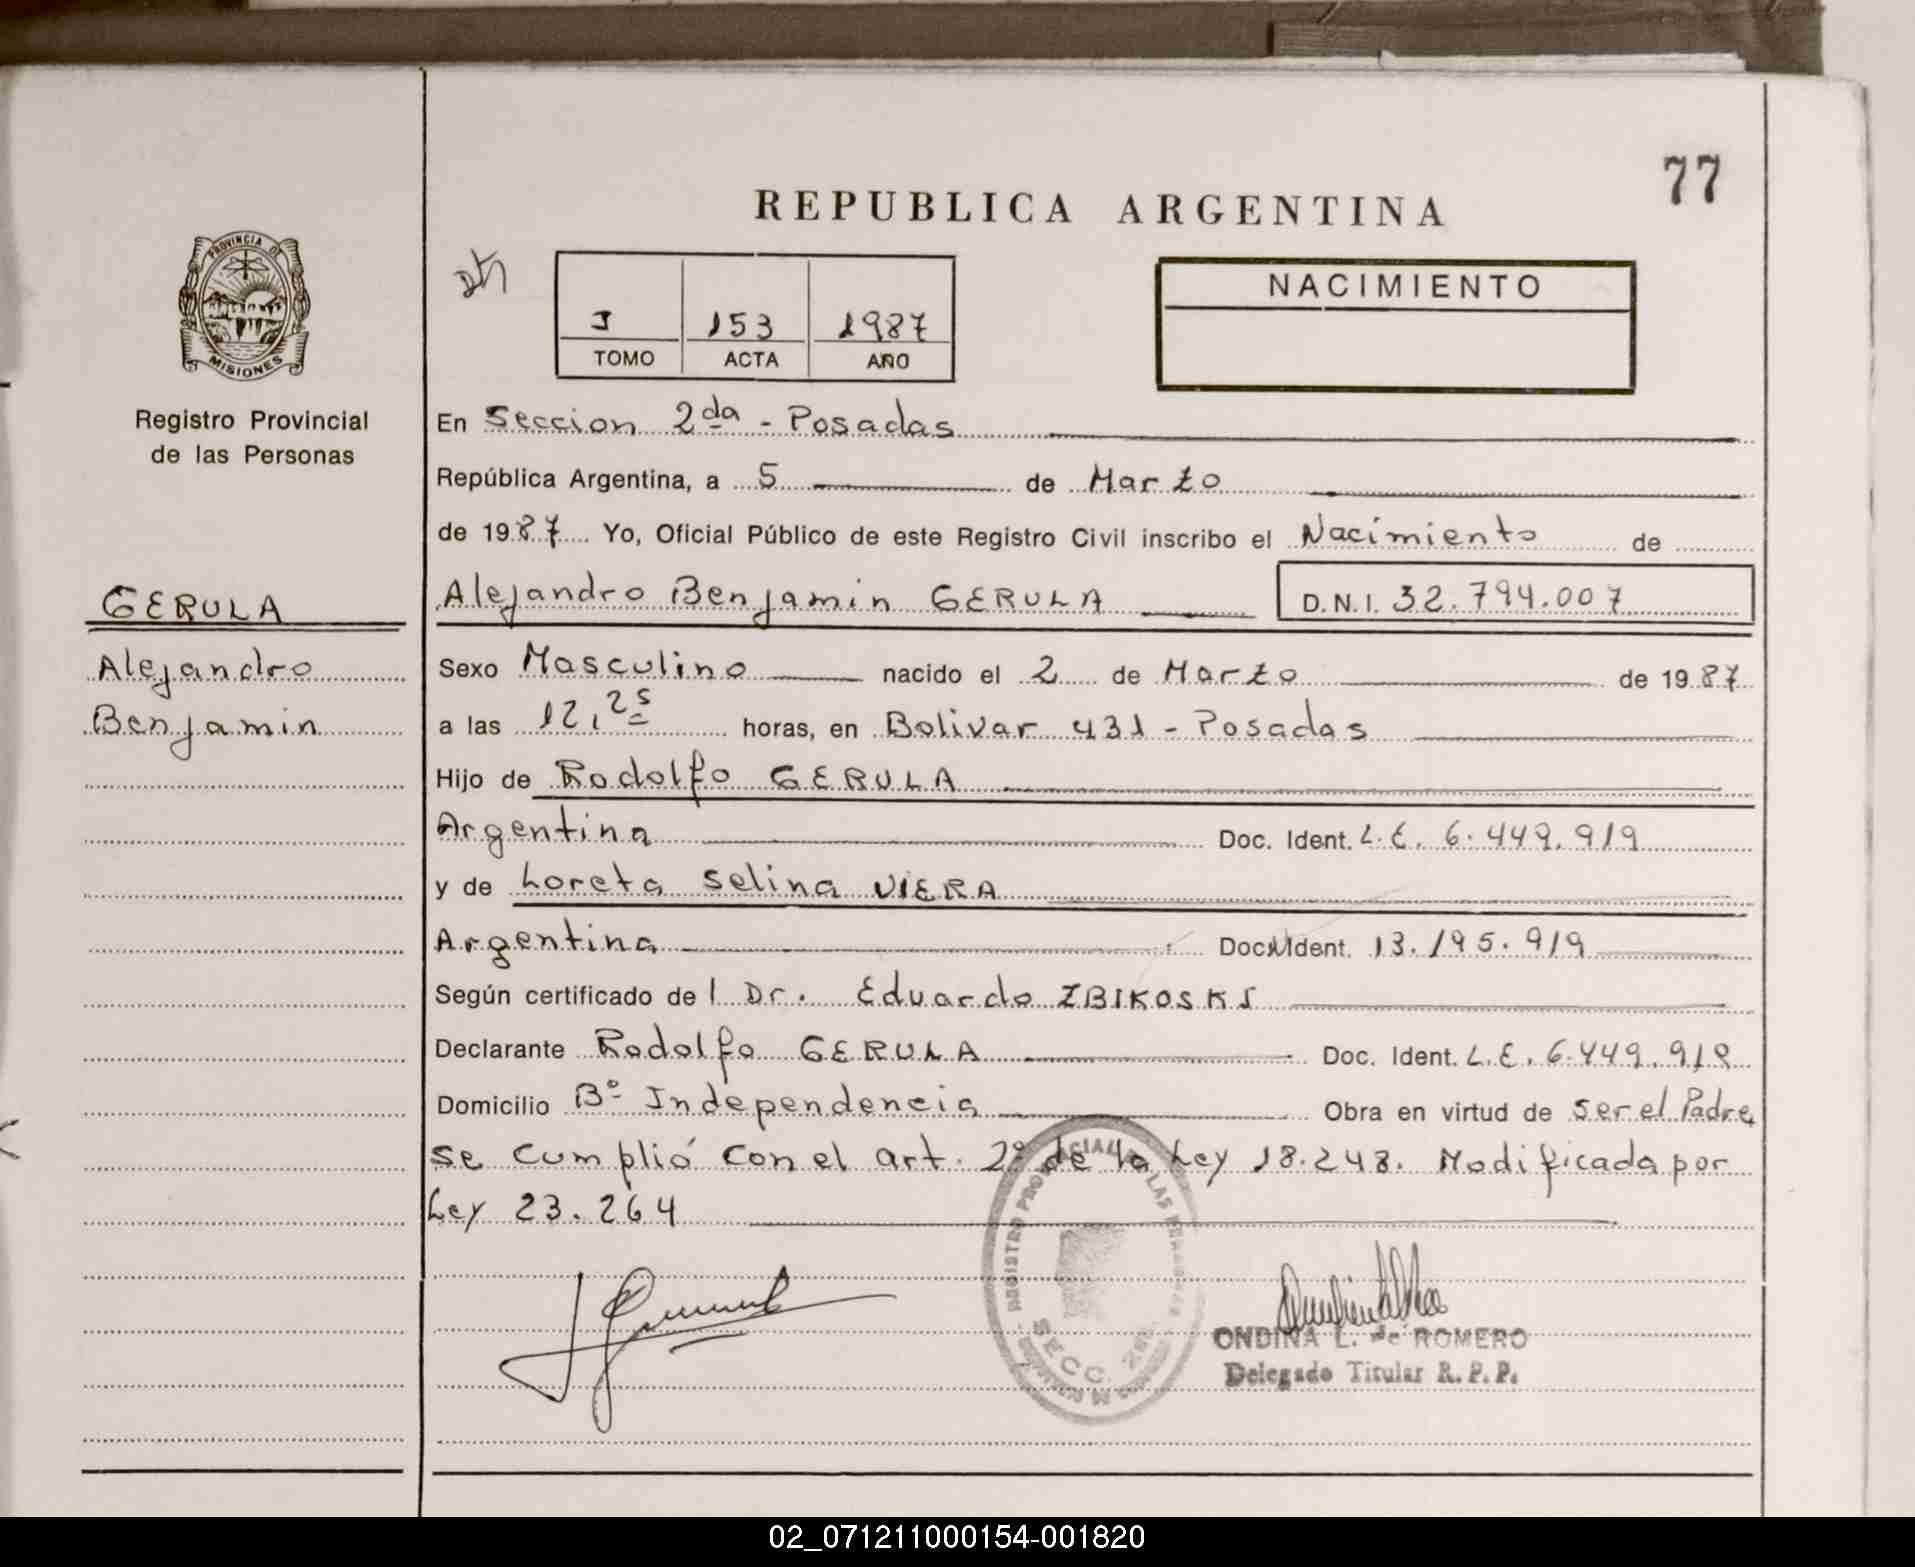 77
REPUBLICA ARGENTINA
PROVINCIA DE
MISIONES
Registro Provincial
de las Personas
I 153 1987
TOMO ACTA AÑO
NACIMIENTO
En Seccion 2da - Posadas
República Argentina, a 5 de Marzo
de 1987 Yo, Oficial Público de este Registro Civil inscribo el Nacimiento de
GERULA
Alejandro
Benjamin
Alejandro Benjamin GERULA D.N.I. 32.794.007
Sexo Masculino nacido el 2 de Marzo de 1987
a las 12,25 horas, en Bolivar 431 - Posadas
Hijo de Rodolfo GERULA
Argentina Doc. Ident. L.E. 6.449.919
y de Loreta Selina VIERA
Argentina Doc. Ident. 13.195.919
Según certificado del Dr. Eduardo ZBIKOSKI
Declarante Rodolfo GERULA Doc. Ident. L.E. 6.449.919
Domicilio Bº Independencia Obra en virtud de ser el Padre
se cumplió con el art. 2º de la Ley 18.248. Modificada por
Ley 23.264
REGISTRO PROVINCIAL DE LAS PERSONAS
SECC. 2da.
ONDINA L. de ROMERO
Delegado Titular R. P. P.
02_071211000154-001820